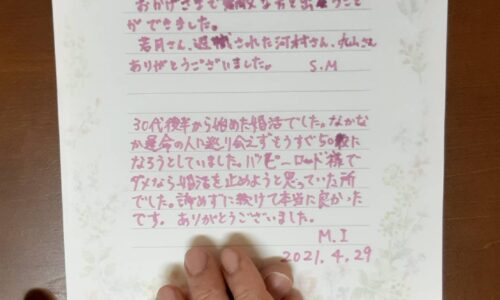 おかげさまで素敵な方と出逢うこと
ができました。
若月さん、退職された河村さん、丸山さん
ありがとうございました。 S.M
30代後半から始めた婚活でした。なかなか
か運命の人に巡り会えずもうすぐ50歳に
なろうとしていました。ハッピーロード様で
ダメなら婚活を止めようと思っていた所
でした。諦めずに続けて本当に良かった
です。ありがとうございました。
M.I
2021.4.29